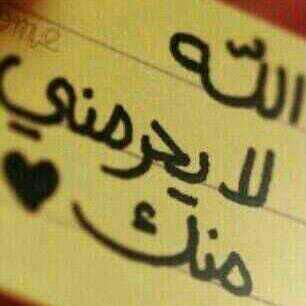 ome
الله
لا يحرمني
منك